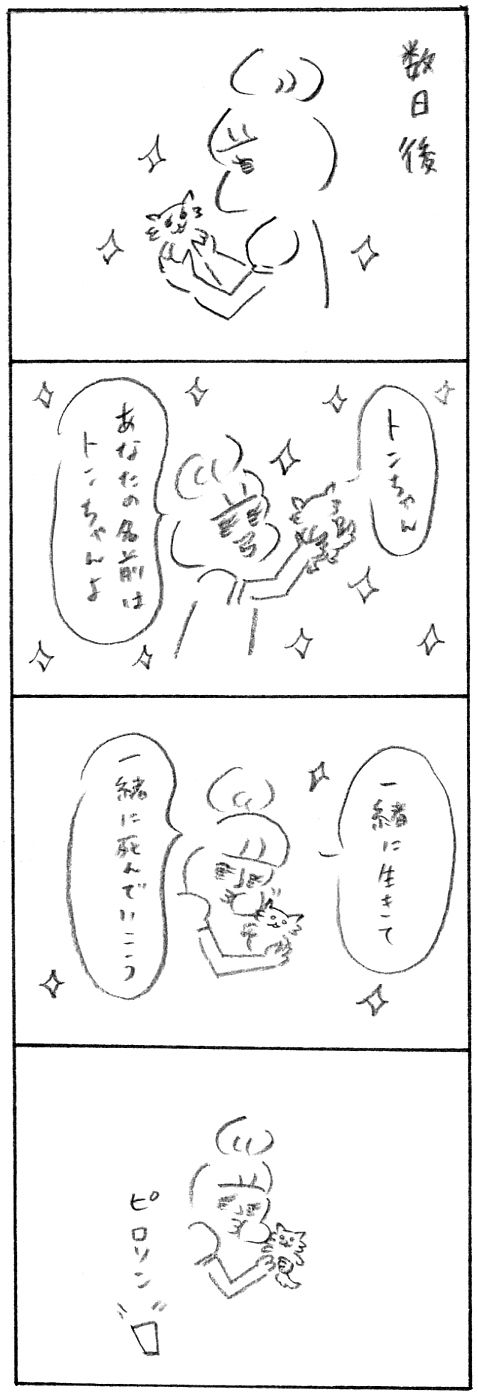 数日後
トンちゃん
あなたの名前は
トンちゃんよ
一緒に生きて
一緒に死んでいこう
ピロリン